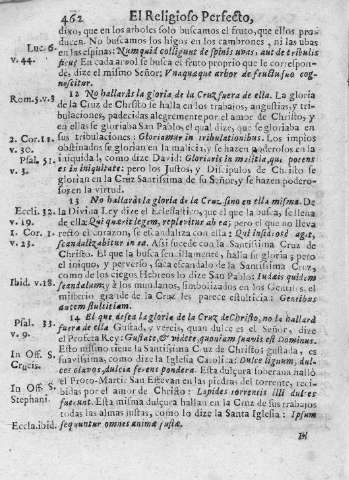 462 El Religioso Perfecto,
dixo, que en los arboles solo buscamos el fruto, que ellos pro-
ducen. No buscamos los higos en los cambrones, ni las ubas
Luc. 6. en las espinas: Numquid colligunt de spinis uvas, aut de tribulis
v. 44. ficus En cada arbol se busca el fruto proprio que le correspon-
de, dize el mismo Señor: Unaquaque arbor de fructu suo cog-
noscitur.
12 No hallarás la gloria de la Cruz fuera de ella. La gloria
Rom. 5. v. 3 de la Cruz de Christo se halla en los trabajos, angustias, y tri-
bulaciones, padecidas alegremente por el amor de Christo; y
en ellas se gloriaba San Pablo, el qual dize, que se gloriaba en
2. Cor. 12. sus tribulaciones: Gloriamur in tribulationibus. Los impios
v. 30. obstinados se glorian en la malicia, y se hazen poderosos en la
Psal. 51. iniquidad, como dize David: Gloriaris in malitia, qui potens
v. 3. es in iniquitate: pero los Justos, y Discipulos de Christo se
glorian en la Cruz Santissima de su Señor, y se hazen podero-
sos en la virtud.
13 No hallarás la gloria de la Cruz sino en ella misma. De
Eccli. 32. la Divina Ley dize el Eclesiastico, que el que la busca, se llena
v. 19. de ella: Qui quærit legem, replevitur ab ea; pero el que no lleva
1. Cor. 1. recto el corazon, se escandaliza con ella: Qui insidiosè agit,
v. 23. scandalizabitur in ea. Assi sucede con la Santissima Cruz de
Christo. El que la busca sencillamente, halla su gloria; pero
el iniquo, y perverso, saca escandalo de la Santissima Cruz,
como de los ciegos Hebreos lo dize San Pablo: Iudæis quidem
Ibid. v. 18. scandalum; y à los mundanos, simbolizados en los Gentiles, el
misterio grande de la Cruz les parece estulticia: Gentibus
autem stultitiam.
14 El que desea la gloria de la Cruz de Christo, no la hallará
Psal. 33. fuera de ella Gustad, y vereis, quan dulce es el Señor, dize
v. 9. el Profeta Rey: Gustate, & videte quoniam suavis est Dominus.
Esto mismo tiene la Santissima Cruz de Christo: gustada, es
In Off. S. suavissima, como dize la Iglesia Catolica: Dulce lignum, dul-
Crucis. ces clavos, dulcia ferens pondera. Esta dulçura soberana halló
el Proto-Martir San Estevan en las piedras del torrente, reci-
In Off. S. bidas por el amor de Christo: Lapides torrentis illi dulces
Stephani. fuerunt. Esta misma dulçura hallan en la Cruz de sus trabajos
todas las almas justas, como lo dize la Santa Iglesia: Ipsum
Eccla. ibid. sequuntur omnes animæ justæ.